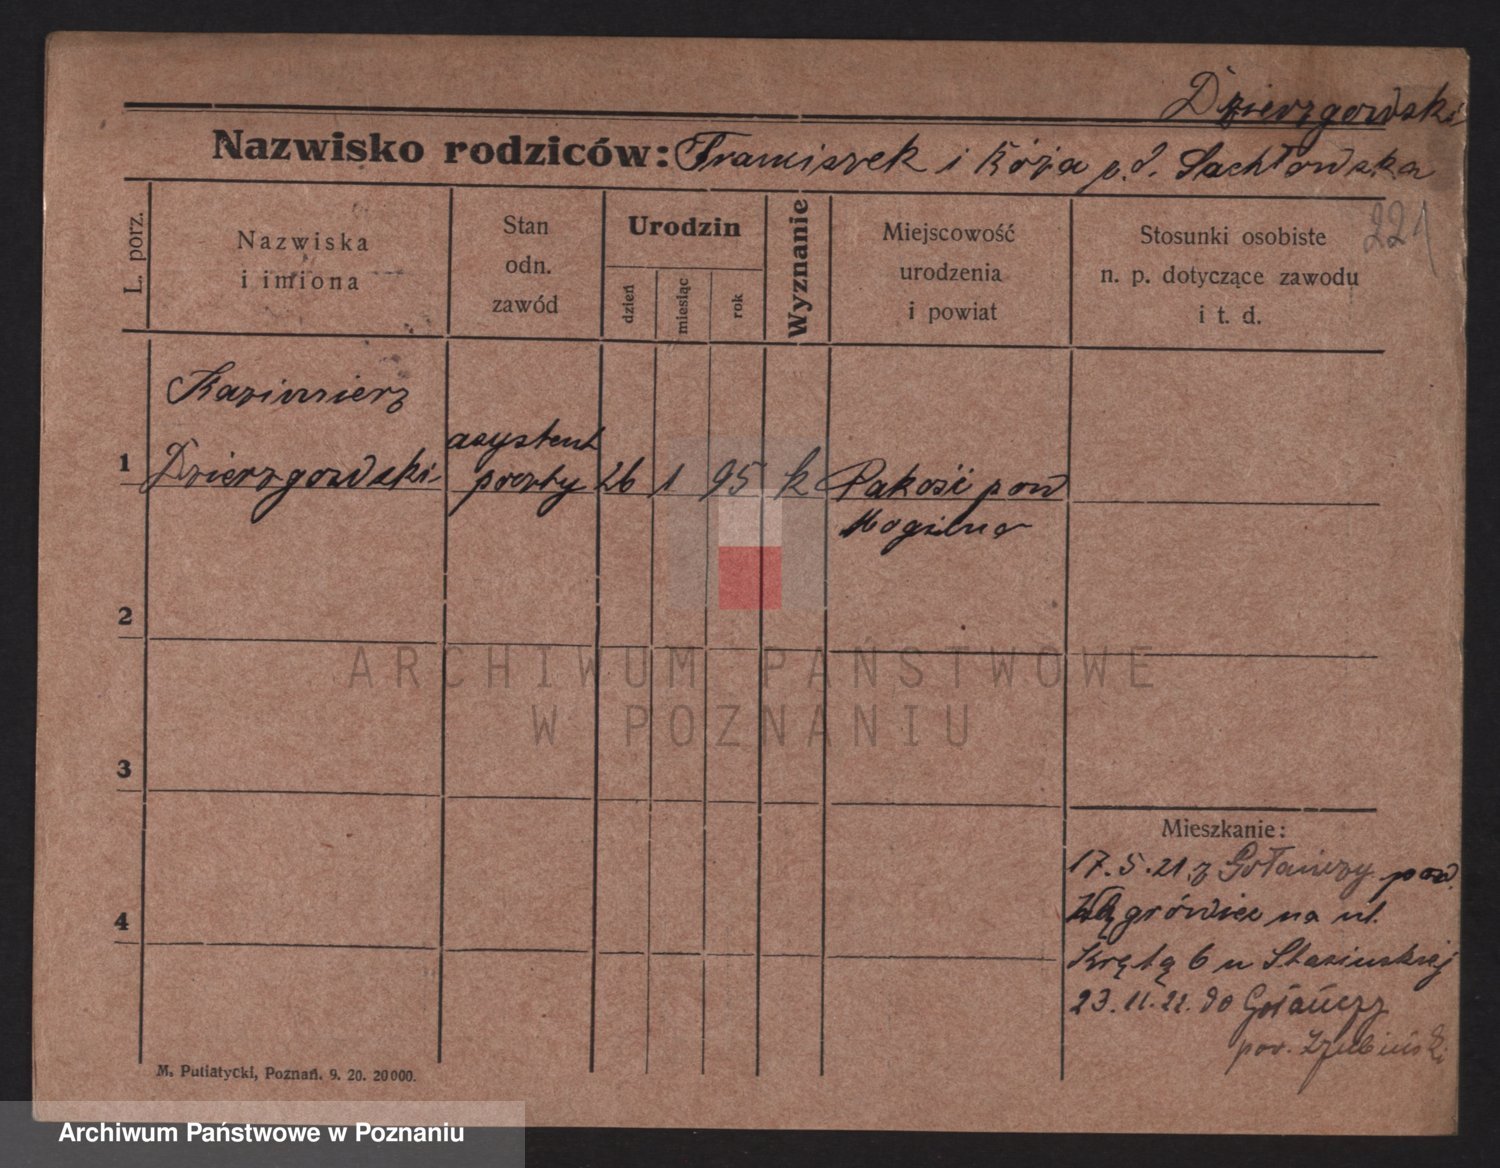 Dzierzgowski
Nazwisko rodziców: Franciszek i Róża p. d. Lachłowska
221
L. porz.
Nazwiska
i imiona
Stan
odn.
zawód
Urodzin
dzień
miesiąc
rok
Wyznanie
Miejscowość
urodzenia
i powiat
Stosunki osobiste
n. p. dotyczące zawodu
i t. d.
Kazimierz
1 Dzierzgowski
asystent
poczty
26 1 95 k
Pakość pow
Mogilno
2
3
4
Mieszkanie:
17. 5. 21. z Gołańczy pow.
Wągrówiec na ul.
Krętą 6 u Stasinskiej
23. 11. 22. do Gołańczy
pow.
M. Putiatycki, Poznań. 9. 20. 20000.
ARCHIWUM PAŃSTWOWE
W POZNANIU
Archiwum Państwowe w Poznaniu